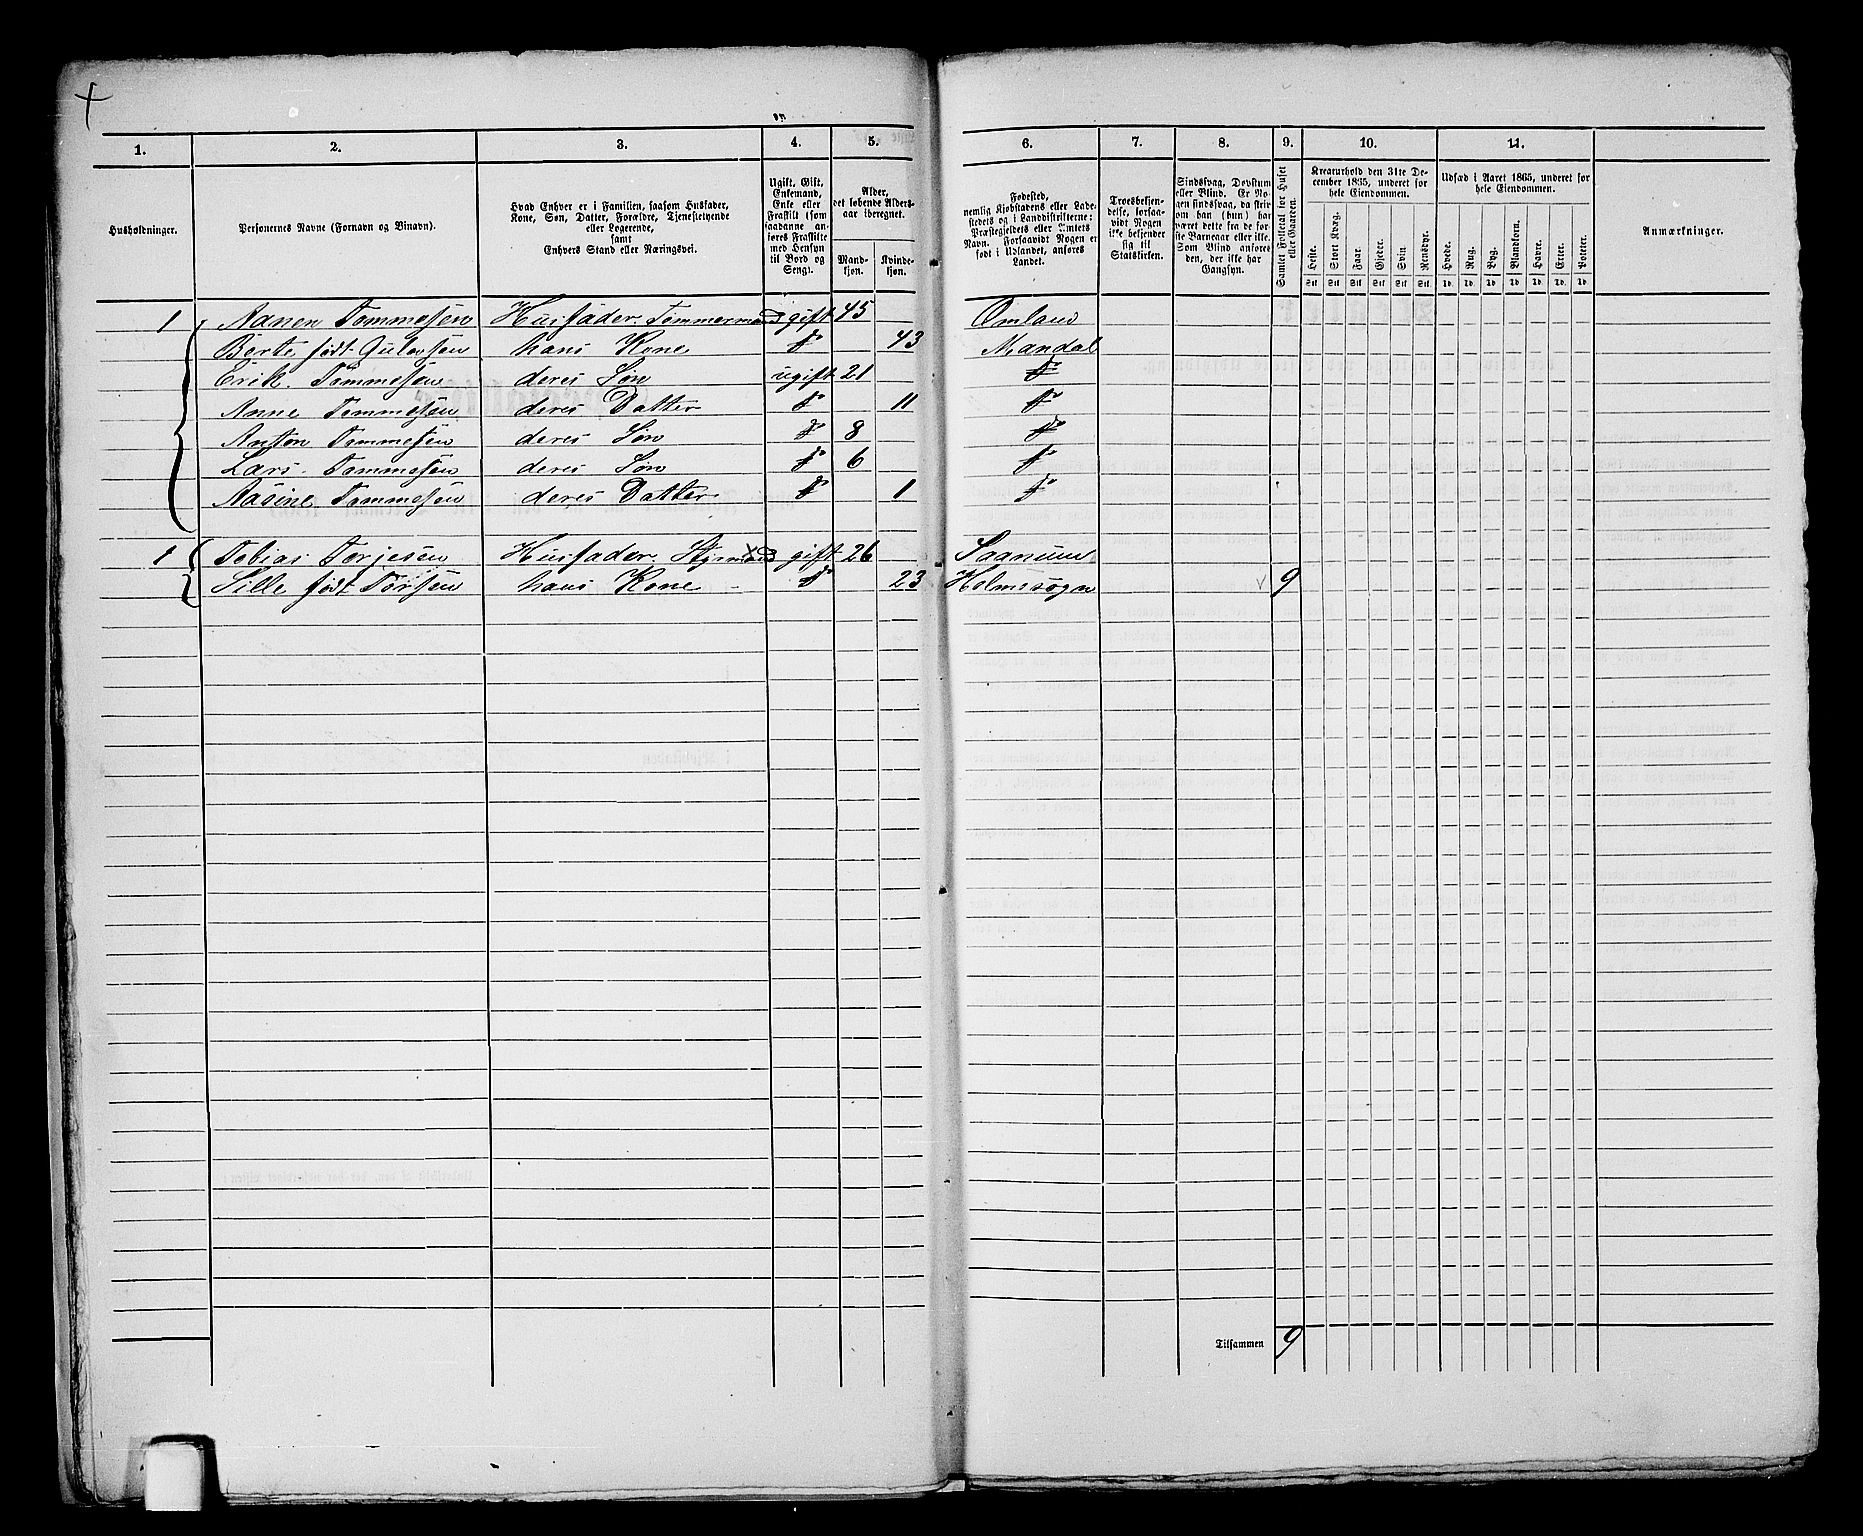 1. 2. 3. 4. 5. 6. 7. 8. 9. 10. 11.
Husholdninger.
Personernes Navne (Fornavn og Binavn).
Hvad Enhver er i Familien, saasom Husfader,
Kone, Søn, Datter, Forældre, Tjenestetyende
eller Logerende,
samt
Enhvers Stand eller Næringsvei.
Ugift, Gift,
Enkemand,
Enke eller
Fraskilt (som
saadanne an-
føres Fraskilte
med Hensyn
til Bord og
Seng).
Alder,
det løbende Alders-
aar iberegnet.
Mand-
kjøn.
Kvinde-
kjøn.
Fødested,
nemlig Kjøbstadens eller Lade-
stedets og i Landdistrikterne:
Præstegjeldets eller Amtets
Navn. Forsaavidt Nogen er
født i Udlandet, anføres
Landet.
Troesbekjen-
delse, forsaa-
vidt Nogen
ikke bekjender
sig til
Statskirken.
Sindssvag, Døvstum
eller Blind. Er No-
gen sindssvag, da skriv
om han (hun) har
været dette fra de før-
ste Barneaar eller ikke.
Som Blind anføres
den, der ikke har
Gangsyn.
Samlet Folketal for Huset
eller Gaarden.
Kreaturhold den 31te De-
cember 1865, underet for
hele Eiendommen.
Heste. Stort Kvæg. Faar. Gjeder. Svin. Rensdyr.
Stk. Stk. Stk. Stk. Stk. Stk.
Udsæd i Aaret 1865, underet for
hele Eiendommen.
Hvede. Rug. Byg. Blandkorn. Havre. Erter. Poteter.
Td. Td. Td. Td. Td. Td. Td.
Anmærkninger.
1 Nanen Tommesen Husfader. Tømmermand gift 45 Omland
Berte født Gulovsen hans Kone do 43 Mandal
Erik Tommesen deres Søn ugift 21 do
Anne Tommesen deres Datter do 11 do
Anton Tommesen deres Søn do 8 do
Lars Tommesen deres Søn do 6 do
Aasine Tommesen deres Datter do 1 do
1 Tobias Torjesen Husfader. Styrmand gift 26 Saanum
Sille født Torsen hans Kone do 23 Holmesogn 9
Tilsammen 9